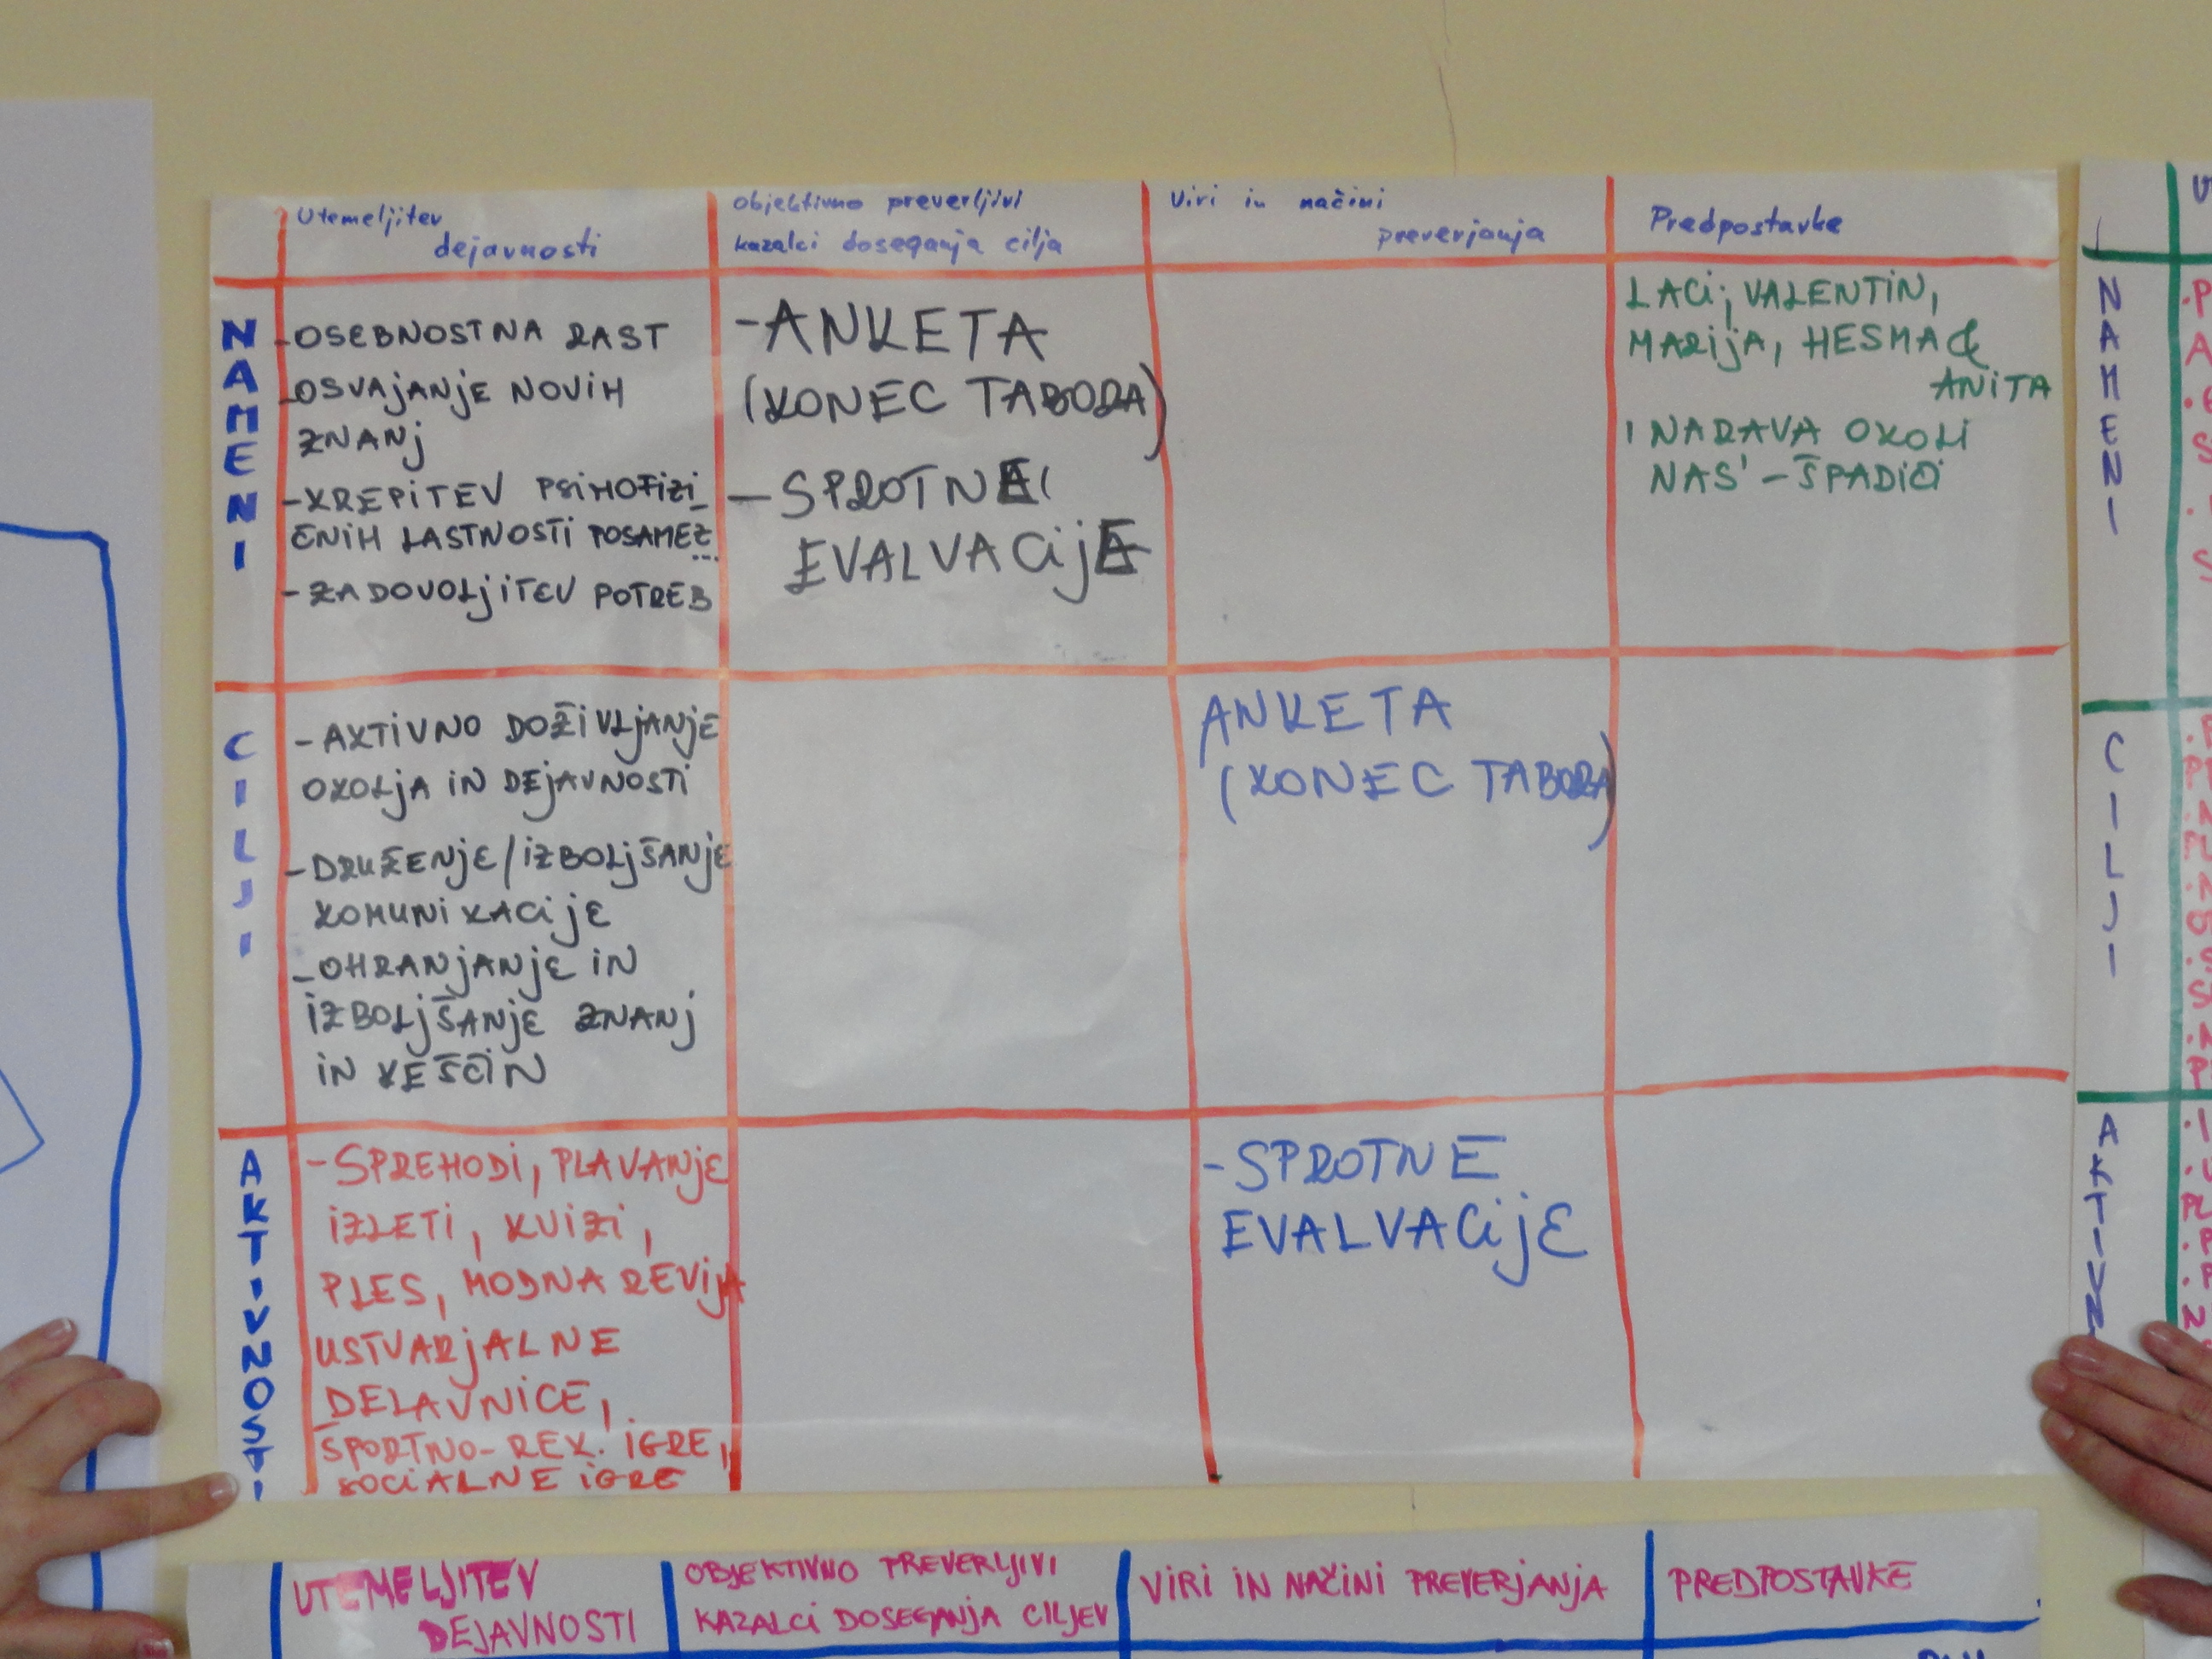 Utemeljitev
dejavnosti
objektivno preverljivi
kazalci doseganja cilja
Viri in načini
preverjanja
Predpostavke
NAMENI
-OSEBNOSTNA RAST
-OSVAJANJE NOVIH
ZNANJ
-KREPITEV PSIHOFIZI_
ČNIH LASTNOSTI POSAMEZ...
-ZADOVOLJITEV POTREB
-ANKETA
(KONEC TABORA)
-SPROTNE
EVALVACIJE
LACI, VALENTIN,
MARIJA, HESMA &
ANITA
'NARAVA OKOLI
NAS' - ŠPADIČI
CILJI
-AKTIVNO DOŽIVLJANJE
OKOLJA IN DEJAVNOSTI
-DRUŽENJE/IZBOLJŠANJE
KOMUNIKACIJE
-OHRANJANJE IN
IZBOLJŠANJE ZNANJ
IN VEŠČIN
ANKETA
(KONEC TABORA)
AKTIVNOSTI
-SPREHODI, PLAVANJE
IZLETI, KVIZI,
PLES, MODNA REVIJA
USTVARJALNE
DELAVNICE,
ŠPORTNO-REK. IGRE,
SOCIALNE IGRE
-SPROTNE
EVALVACIJE
NAMENI
CILJI
AKTIVN
UTEMELJITEV
DEJAVNOSTI
OBJEKTIVNO PREVERLJIVI
KAZALCI DOSEGANJA CILJEV
VIRI IN NAČINI PREVERJANJA
PREDPOSTAVKE